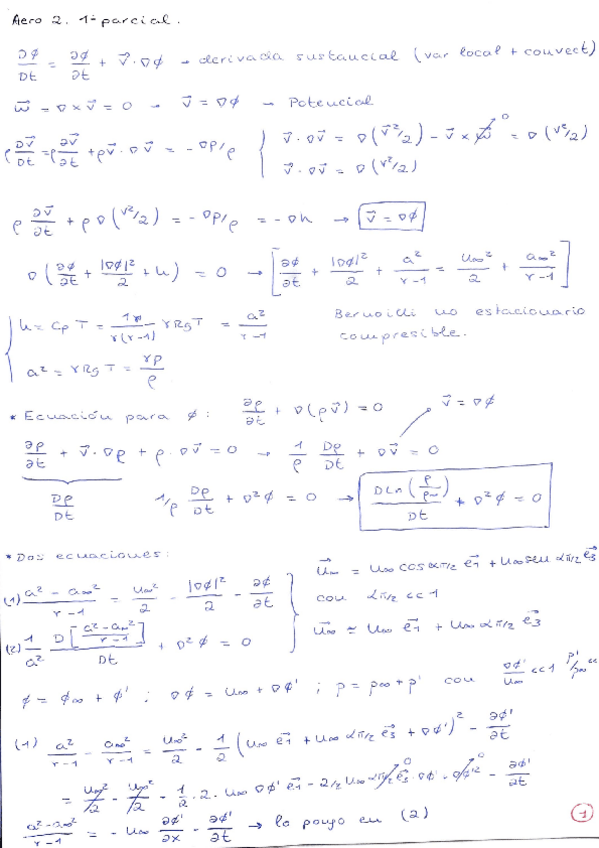 Aero 2. 1er parcial.
Dϕ/Dt = ∂ϕ/∂t + v⃗·∇ϕ → derivada sustancial (var local + convect)
ω⃗ = ∇×v⃗ = 0 → v⃗ = ∇ϕ → Potencial
ρ Dv⃗/Dt = ρ ∂v⃗/∂t + ρv⃗·∇v⃗ = -∇p/ρ { v⃗·∇v⃗ = ∇(v⃗²/2) - v⃗×ω⃗ 0 = ∇(v²/2)
v⃗·∇v⃗ = ∇(v²/2)
ρ ∂v⃗/∂t + ρ∇(v²/2) = -∇p/ρ = -∇h → v⃗ = ∇ϕ
∇(∂ϕ/∂t + |∇ϕ|²/2 + h) = 0 → [∂ϕ/∂t + |∇ϕ|²/2 + a²/γ-1 = u∞²/2 + a∞²/γ-1]
h = cp T = 1γ/γ(γ-1) γRgT = a²/γ-1
Bernoulli no estacionario
compresible.
a² = γRgT = γp/ρ
* Ecuación para ϕ: ∂ρ/∂t + ∇(ρv⃗) = 0 v⃗ = ∇ϕ
∂ρ/∂t + v⃗·∇ρ + ρ·∇v⃗ = 0 → 1/ρ Dρ/Dt + ∇v⃗ = 0
Dρ/Dt 1/ρ Dρ/Dt + ∇²ϕ = 0 → D Ln(ρ/ρ∞)/Dt + ∇²ϕ = 0
* Dos ecuaciones:
(1) a²-a∞²/γ-1 = u∞²/2 - |∇ϕ|²/2 - ∂ϕ/∂t
(2) 1/a² D[a²-a∞²/γ-1]/Dt + ∇²ϕ = 0
u⃗∞ = u∞ cos απ/2 e⃗1 + u∞ sen απ/2 e⃗3
con απ/2 << 1
u⃗∞ ≃ u∞ e⃗1 + u∞ απ/2 e⃗3
ϕ = ϕ∞ + ϕ' ; ∇ϕ = u∞ + ∇ϕ' ; p = p∞ + p' con ∇ϕ'/u∞ <<1 p'/p∞ <<
(1) a²/γ-1 - a∞²/γ-1 = u∞²/2 - 1/2 (u∞ e⃗1 + u∞ απ/2 e⃗3 + ∇ϕ')² - ∂ϕ'/∂t
= u∞²/2 - u∞²/2 - 1/2·2·u∞ ∇ϕ' e⃗1 - 2/2 u∞ απ/2 e⃗3·∇ϕ' 0 - ∇ϕ'² 0 - ∂ϕ'/∂t
a²-a∞²/γ-1 = -u∞ ∂ϕ'/∂x - ∂ϕ'/∂t → lo pongo en (2)
1